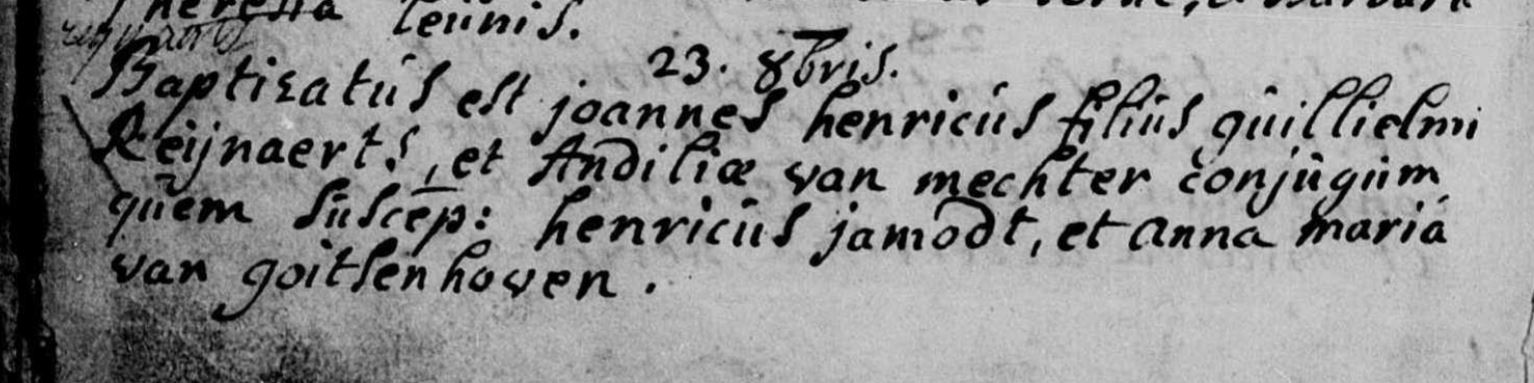 Theresia Leunis.
23. 8bris.
Baptizatus est joannes henricus filius quillielmi
Reijnaerts, et Andiliæ van mechter conjugum
quem suscep: henricus jamodt, et anna maria
van goitsenhoven.